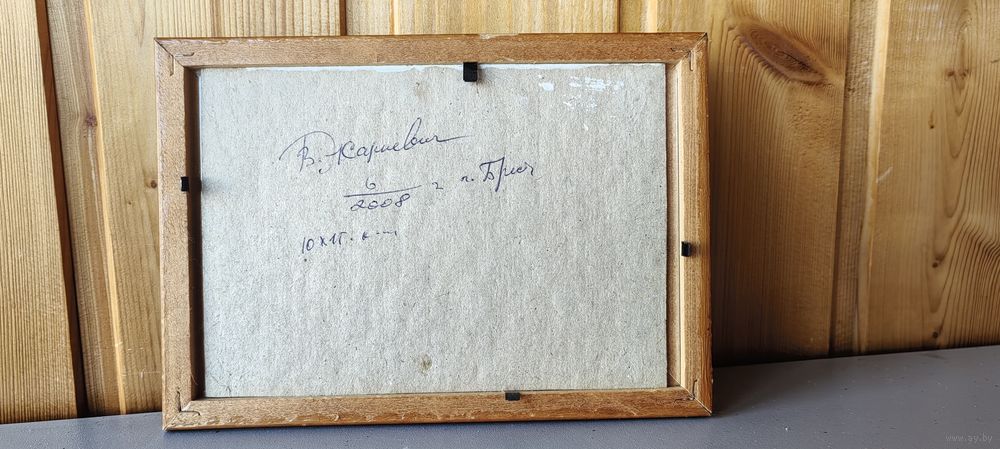 В. Жариевич
6/2008 г г. Брест
10 х 15.
www.ay.by